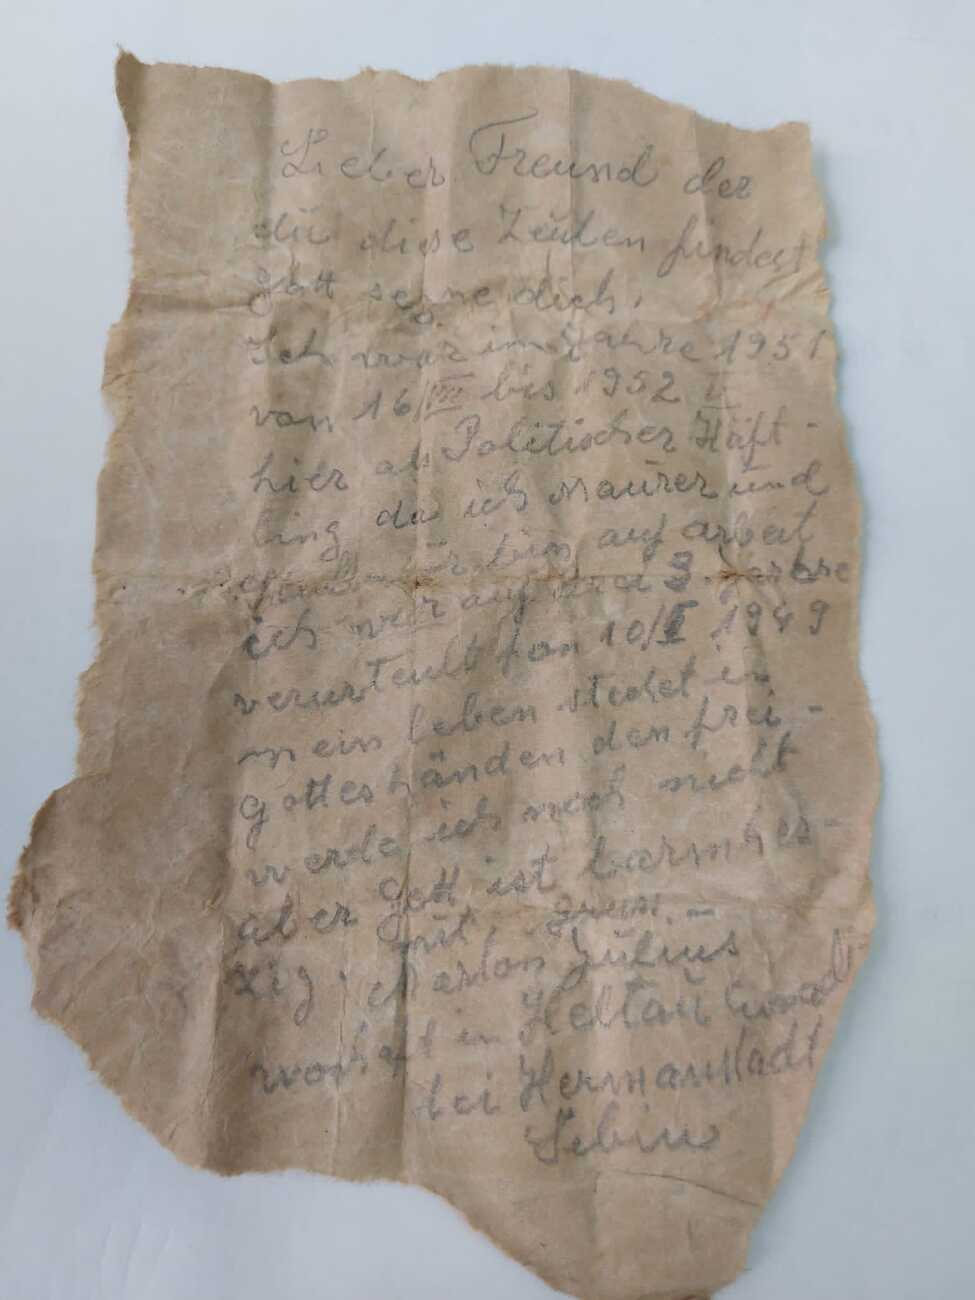 Lieber Freund der
du diese Zeulen findest
gott segne dich.
Ich war im Jahre 1951
von 16/VIII bis 1952 V
hier als Politischer Häft-
ling da ich Maurer und
bin auf arbeit
ich war auf 3 Jahre
verurteult fon 10/X 1949
mein leben stehet in
gotteshänden den frei-
werde ich noch nicht
aber gott ist barmher-
zig. mit grus.-
Marton Julius
wohaft in Heltau
bei Hermanstadt
Sebiu